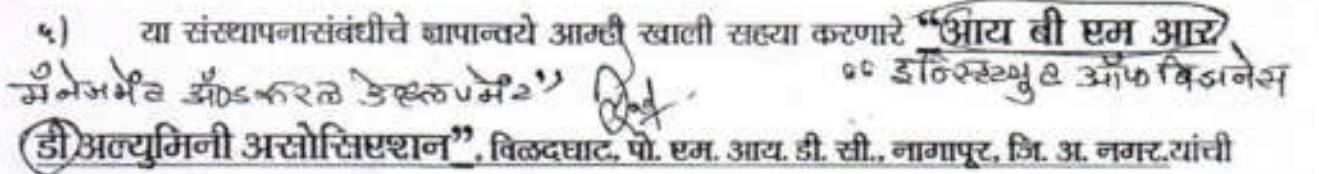 ५) या संस्थापनासंबंधीचे ज्ञापान्वये आम्ही खाली सह्या करणारे “आय बी एम आर
“ इन्स्टिट्युट ऑफ बिझनेस
मॅनेजमेंट अँड रूरल डेव्हलपमेंट”
डी अल्युमिनी असोसिएशन”, विळदघाट, पो. एम. आय. डी. सी., नागापूर, जि. अ. नगर.यांची